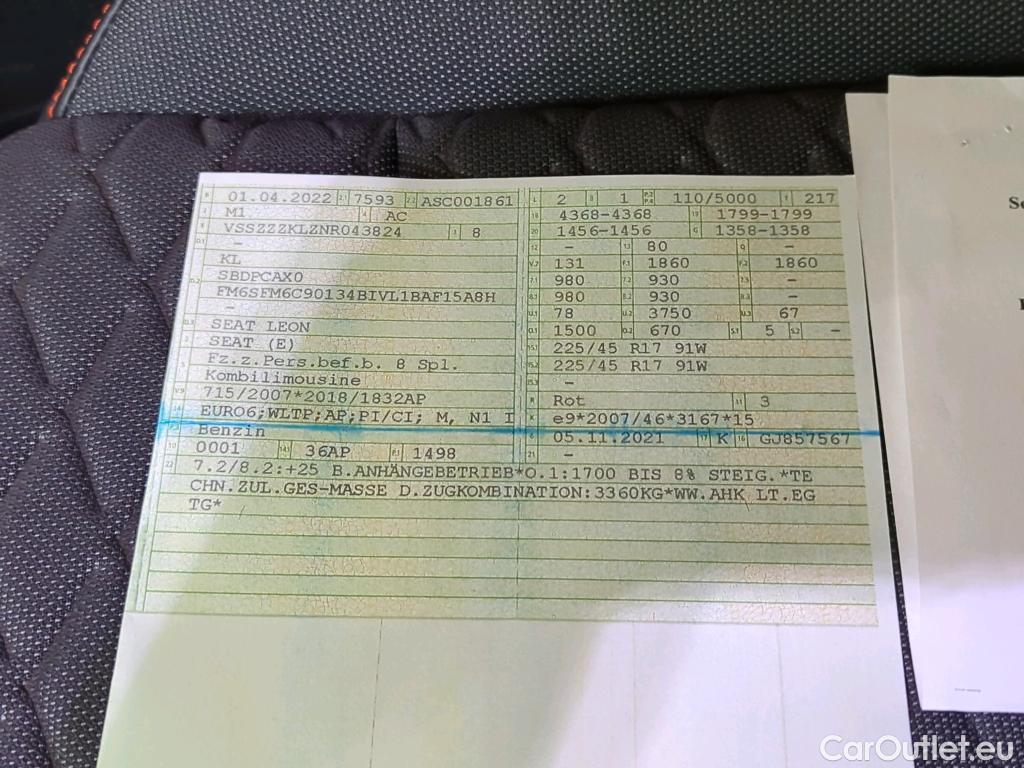 B 01.04.2022 2.1 7593 2.2 ASC001861 L 2 9 1 P.2 P.4 110/5000 T 217
J M1 4 AC 18 4368-4368 19 1799-1799
E VSSZZZKLZNR043824 3 8 20 1456-1456 G 1358-1358
D.1 - 12 - 13 80 Q -
KL V.7 131 F.1 1860 F.2 1860
D.2 SBDPCAX0 7.1 980 7.2 930 7.3 -
FM6SFM6C90134BIVL1BAF15A8H 8.1 980 8.2 930 8.3 -
- U.1 78 U.2 3750 U.3 67
D.3 SEAT LEON O.1 1500 O.2 670 S.1 5 S.2 -
2 SEAT (E) 15.1 225/45 R17 91W
5 Fz.z.Pers.bef.b. 8 Spl. 15.2 225/45 R17 91W
Kombilimousine 15.3 -
V.9 715/2007*2018/1832AP R Rot 11 3
14 EURO6;WLTP;AP;PI/CI; M, N1 I K e9*2007/46*3167*15
P.3 Benzin 6 05.11.2021 17 K 16 GJ857567
10 0001 14.1 36AP P.1 1498 21 -
22 7.2/8.2:+25 B.ANHÄNGEBETRIEB*O.1:1700 BIS 8% STEIG.*TE
CHN.ZUL.GES-MASSE D.ZUGKOMBINATION:3360KG*WW.AHK LT.EG
TG*
Se
CarOutlet.eu